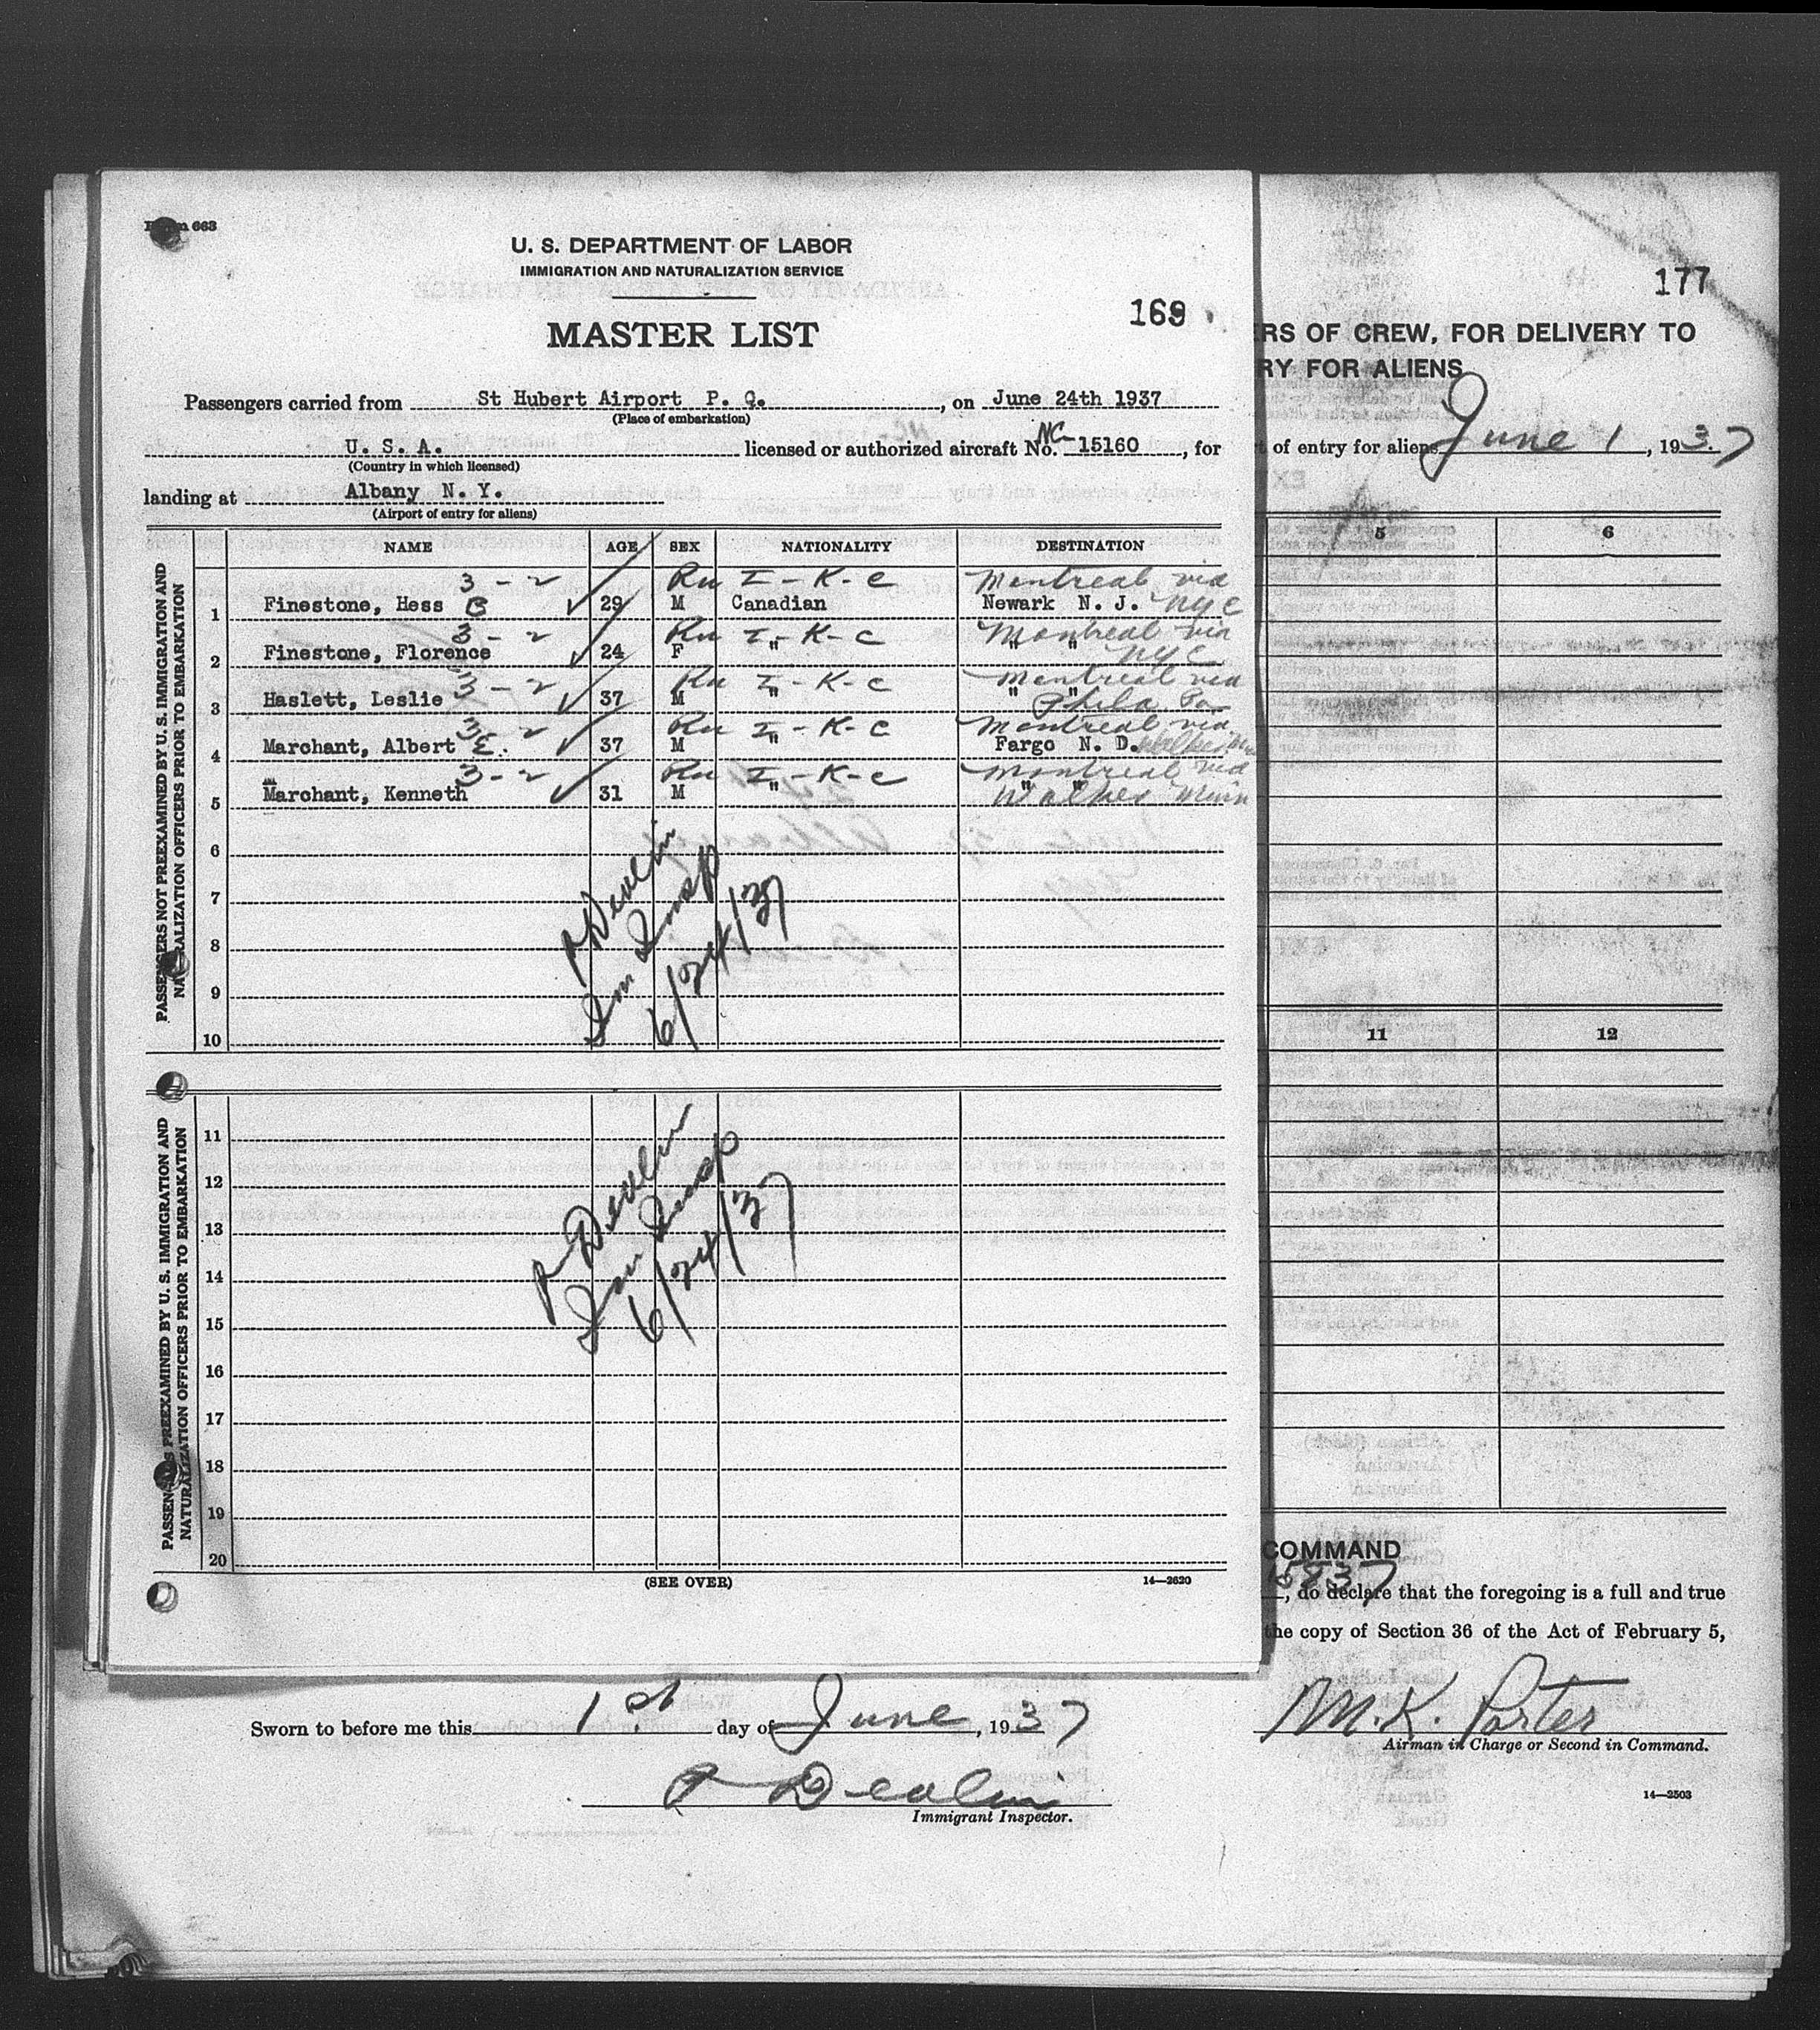 Form 663
U. S. DEPARTMENT OF LABOR
IMMIGRATION AND NATURALIZATION SERVICE
169
MASTER LIST
Passengers carried from St Hubert Airport P. Q., on June 24th 1937
(Place of embarkation)
U. S. A. licensed or authorized aircraft No. NC-15160, for
(Country in which licensed)
landing at Albany N. Y.
(Airport of entry for aliens)
NAME AGE SEX NATIONALITY DESTINATION
PASSENGERS NOT PREEXAMINED BY U. S. IMMIGRATION AND
NATURALIZATION OFFICERS PRIOR TO EMBARKATION
3 - 2 I - K - C Montreal via
1 Finestone, Hess B 29 M Canadian Newark N. J. NYC
3 - 2 I - K - C Montreal via
2 Finestone, Florence 24 F " " " NYC
3 - 2 I - K - C Montreal via
3 Haslett, Leslie 37 M " " " Phila. Pa
3 - 2 I - K - C Montreal via
4 Marchant, Albert E. 37 M " Fargo N. D. Walker
3 - 2 I - K - C Montreal via
5 Marchant, Kenneth 31 M " " " Walker Minn
6
7
8
9
10
Devlin
Imm Insp
6/24/37
PASSENGERS PREEXAMINED BY U. S. IMMIGRATION AND
NATURALIZATION OFFICERS PRIOR TO EMBARKATION
11
12
13
14
15
16
17
18
19
20
Devlin
Imm Insp
6/24/37
(SEE OVER) 14—2620
177
RS OF CREW, FOR DELIVERY TO
RY FOR ALIENS
t of entry for aliens June 1, 1937
5 6
11 12
COMMAND
15837
, do declare that the foregoing is a full and true
the copy of Section 36 of the Act of February 5,
Sworn to before me this 1st day of June, 1937
M. K. Porter
Airman in Charge or Second in Command.
Devlin
Immigrant Inspector.
14—2503